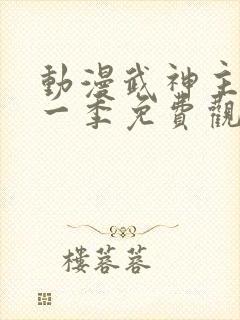 動漫武神主
一季免費觀
樓蓉蓉